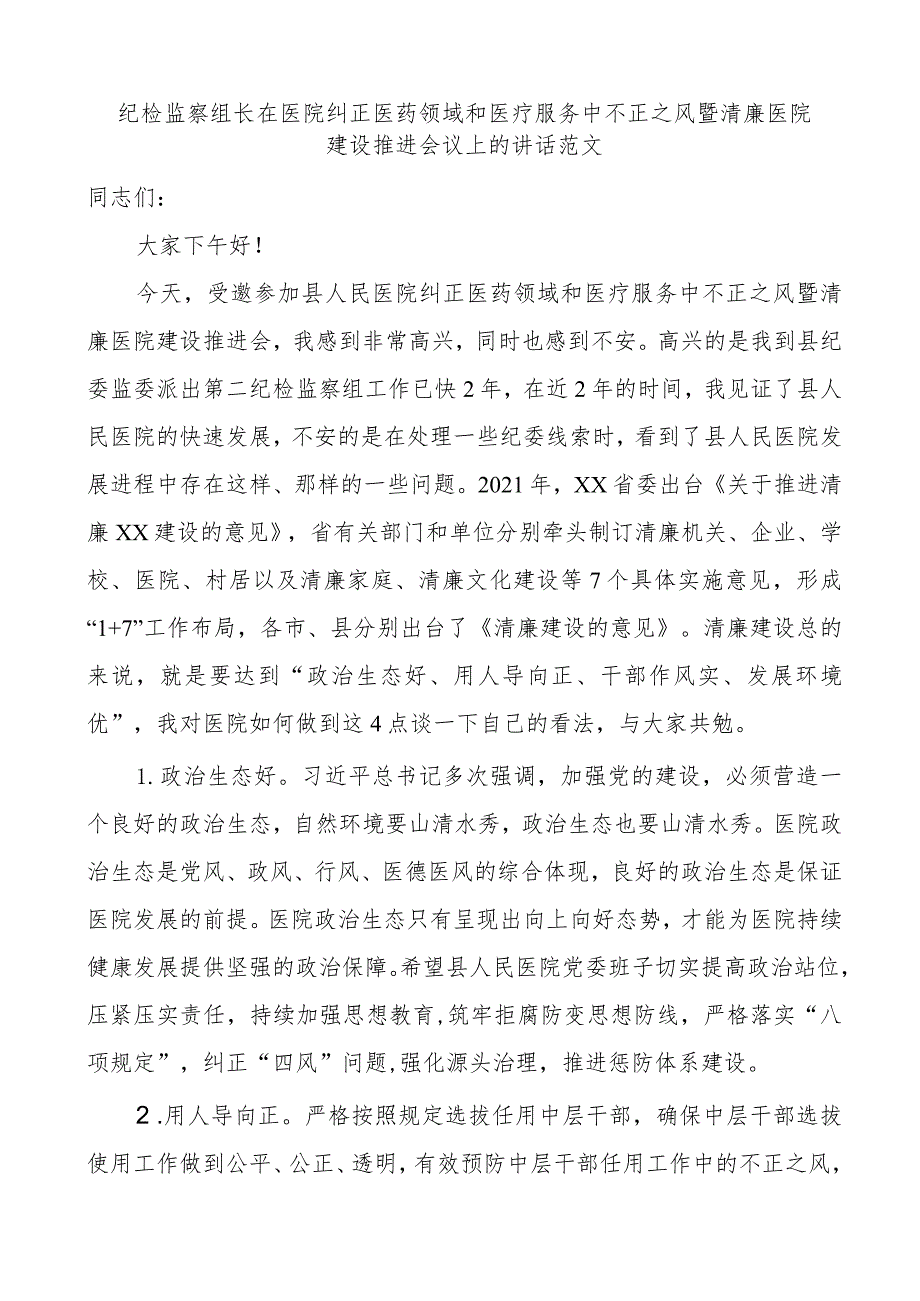 纪检监察组长在医院纠正医药领域和医疗服务中不正之风暨清廉医院
建设推进会议上的讲话范文
同志们：
大家下午好！
今天，受邀参加县人民医院纠正医药领域和医疗服务中不正之风暨清
廉医院建设推进会，我感到非常高兴，同时也感到不安。高兴的是我到县纪
委监委派出第二纪检监察组工作已快2年，在近2年的时间，我见证了县人
民医院的快速发展，不安的是在处理一些纪委线索时，看到了县人民医院发
展进程中存在这样、那样的一些问题。2021年，XX省委出台《关于推进清
廉XX建设的意见》，省有关部门和单位分别牵头制订清廉机关、企业、学
校、医院、村居以及清廉家庭、清廉文化建设等7个具体实施意见，形成
“1+7”工作布局，各市、县分别出台了《清廉建设的意见》。清廉建设总的
来说，就是要达到“政治生态好、用人导向正、干部作风实、发展环境
优”，我对医院如何做到这4点谈一下自己的看法，与大家共勉。
1.政治生态好。习近平总书记多次强调，加强党的建设，必须营造一
个良好的政治生态，自然环境要山清水秀，政治生态也要山清水秀。医院政
治生态是党风、政风、行风、医德医风的综合体现，良好的政治生态是保证
医院发展的前提。医院政治生态只有呈现出向上向好态势，才能为医院持续
健康发展提供坚强的政治保障。希望县人民医院党委班子切实提高政治站位，
压紧压实责任，持续加强思想教育,筑牢拒腐防变思想防线，严格落实“八
项规定”，纠正“四风”问题,强化源头治理，推进惩防体系建设。
2.用人导向正。严格按照规定选拔任用中层干部，确保中层干部选拔
使用工作做到公平、公正、透明，有效预防中层干部任用工作中的不正之风，